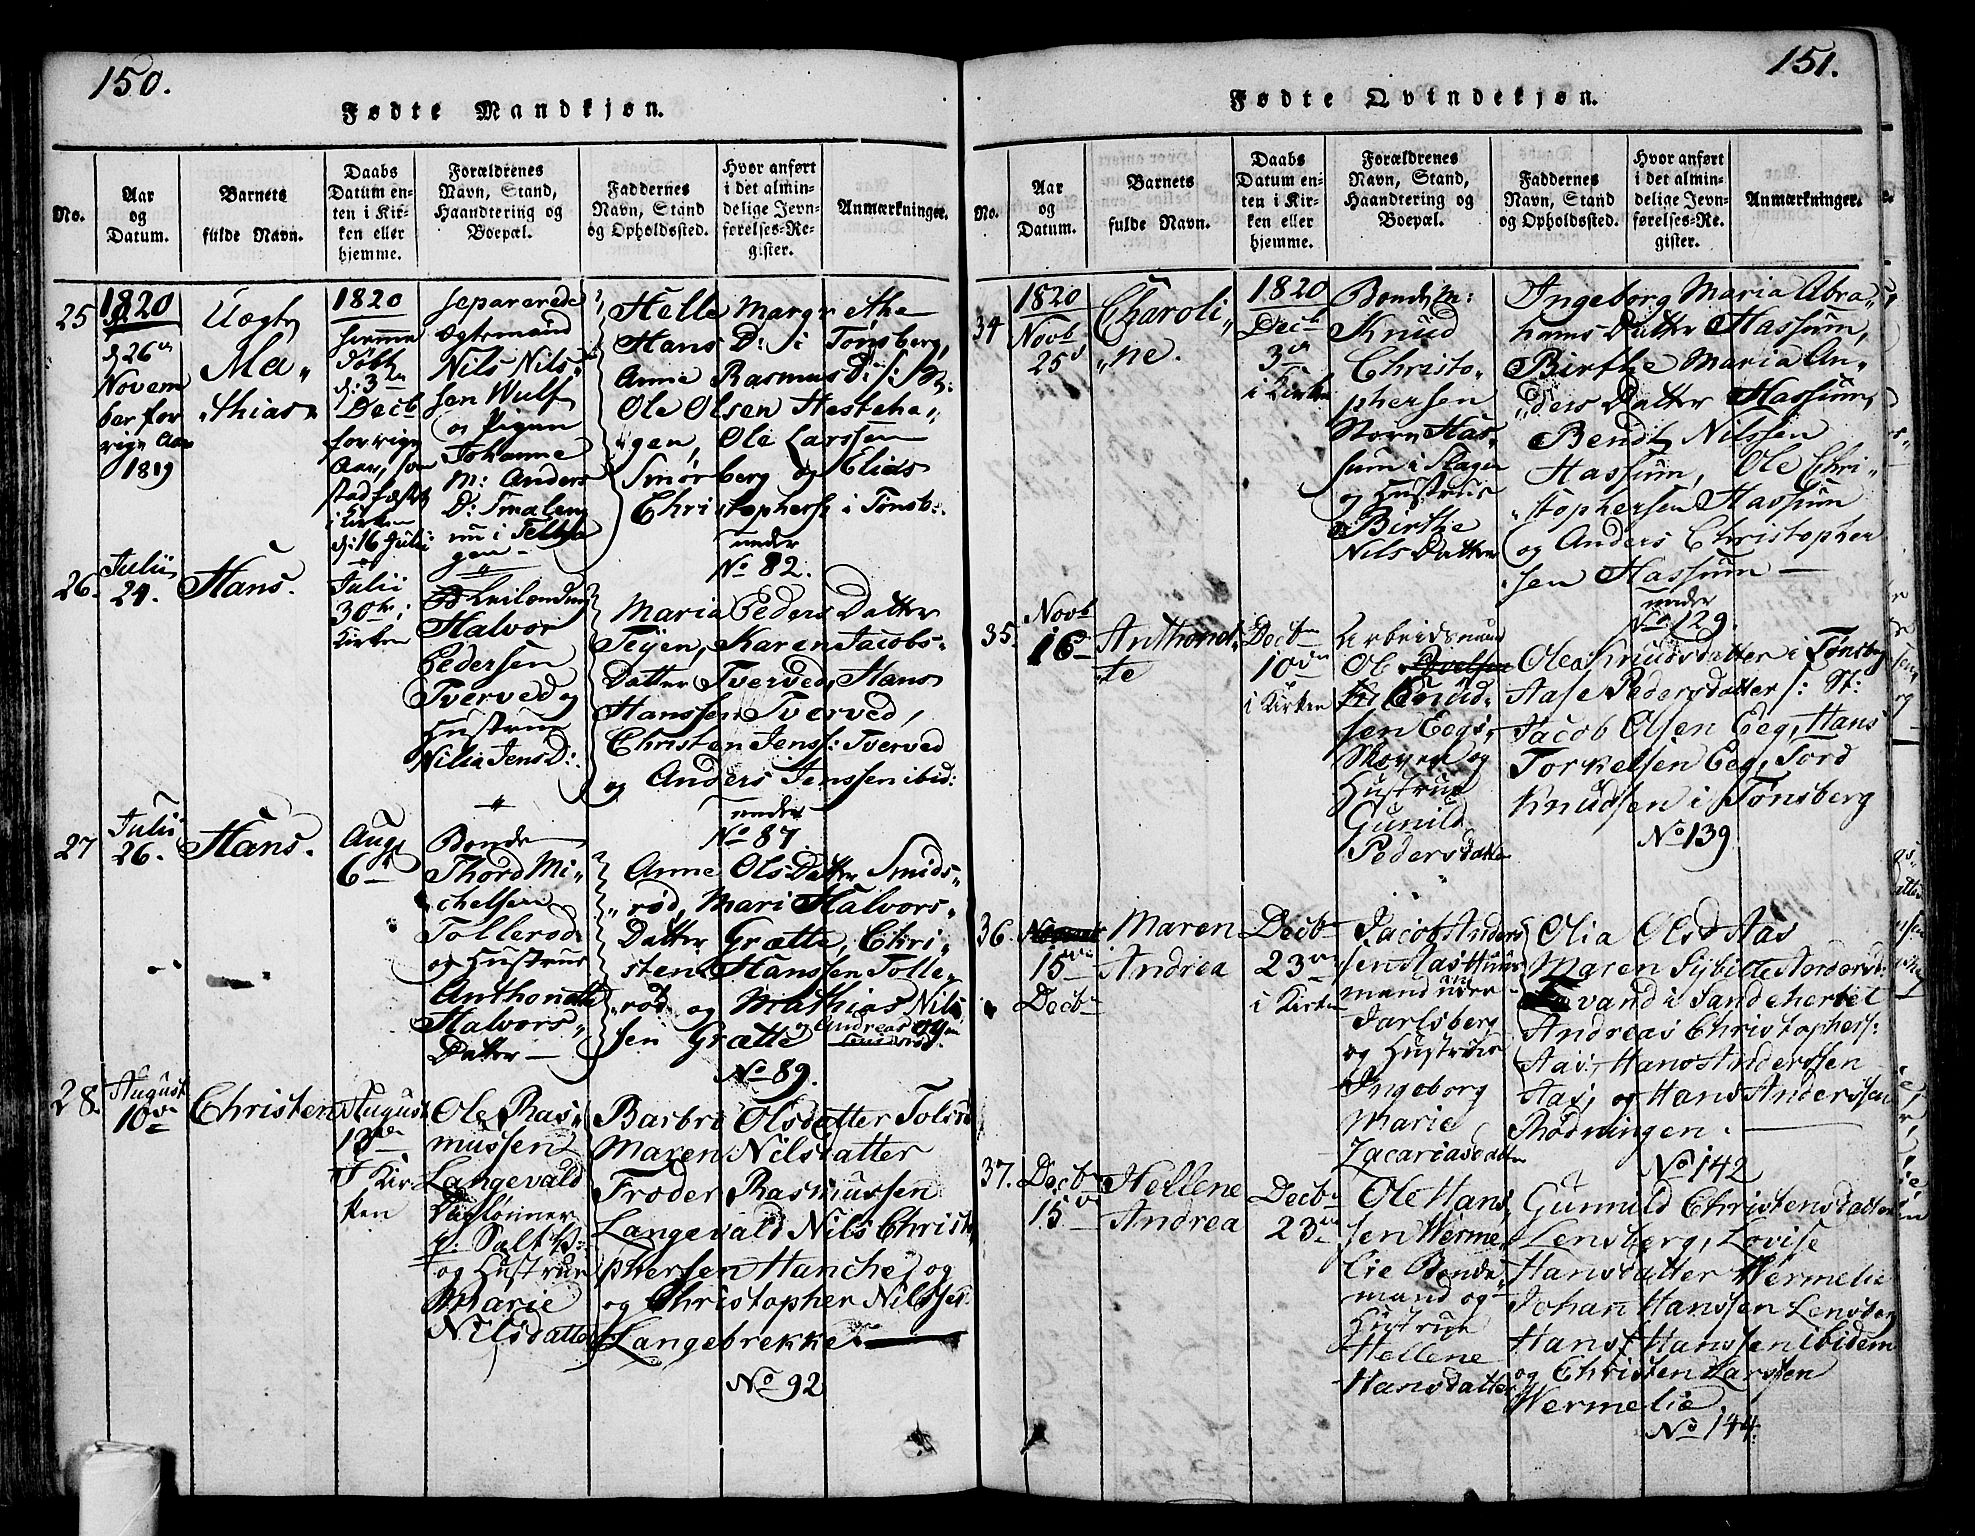 150.
Fødte Mandkjøn.
No.
Aar
og
Datum.
Barnets
fulde Navn.
Daabs
Datum en-
ten i Kir-
ken eller
hjemme.
Forældrenes
Navn, Stand,
Haandtering og
Boepæl.
Faddernes
Navn, Stand
og Opholdssted.
Hvor anført
i det almin-
delige Jevn-
førelses-Re-
gister.
Anmærkninger.
25
1820
d. 26
Novem
ber for
rige Aar
1819
Uægte
Ma„
„thias
1820
hjemme
døbt
d: 3
Decb
forrige
Aar,
stadfæstet
i Kirken
d: 16 Julii
separerede
Nils Nils„
sen Wulf
og Pigen
Johanne
M: Anders
D:
Helle Margrethe
Hans D: i Tønsberg,
Anne Rasmus D: /: M:
Ole Olsen Hesteha„
„gen, Ole Larssen
Smørberg og Elias
Christophers i Tønsb:
under
No 82.
26.
Julii
24.
Hans.
Julii
30te i
Kirken
Halvor
Pedersen
Tverved og
Hustrue
Nilia Jens D:
Maria Peders Datter
Teijen, Karen Jacobs„
Datter Tverved, Hans
Hanssen Tverved,
Christen Jens: Tverved
og Anders Jenssen ibid:
under
No 87
27
Julii
26.
Hans.
Aug
6
Bonde
Thord Mi„
chelsen
Tollerød
og Hustrue
Anthonette
Halvors„
Datter
Anne Ols Datter Smids„
„rød, Mari Halvors„
Datter Grætte, Chri„
sten Hanssen Tolle„
„rød og Mathias Nils
sen Grætte og Andreas
No 89.
28.
August
10
Christen
August
13
i Kir„
ken
Ole Ras„
mussen
Langevald
Dagslønner
p: Salt V:
og Hustrue
Marie
Nilsdatter
Barbro Olsdatter Tolsrød
Maren Nilsdatter
Frøder Rasmussen
Langevald Nils Christo
phersen Hanche, og
og Christopher Nilssen
Langebrekke.
No 92
151.
Fødte Qvindekjøn.
No.
Aar
og
Datum.
Barnets
fulde Navn.
Daabs
Datum en-
ten i Kir-
ken eller
hjemme.
Forældrenes
Navn, Stand,
Haandtering og
Boepæl.
Faddernes
Navn, Stand
og Opholdssted.
Hvor anført
i det almin-
delige Jevn-
førelses-Re-
gister.
Anmærkninger.
34
1820
Novb
25
Charoli„
„ne.
1820
Decb
3
i Kirken
Bondem:
Knud
Christo„
phersen
Store Has„
sum i Slagen
og Hustrue
Birthe
Nils Datter
Ingeborg Maria Abra„
hams Datter Hassum,
Birthe Maria An„
„ders Datter Hassum,
Bendt Nilssen
Hassum, Ole Chri„
„stophersen Hassum
og Anders Christopher
sen Hassum
under
No 129.
35.
Novb
16
Anthonet„
„te
Decb
10
i Kirken
Arbeidsmand
Ole
Knud„
sen Eegs„
Skoven og
Hustrue
Gunild
Pedersdatter
Olea Knudsdatter i Tønsberg
Aase Pedersdatter /: St:
Jacob Olsen Eeg, Hans
Torkelsen Eeg, Tord
Knudsen i Tønsberg
No 139.
36.
15
Decb
Maren
Andrea
Decb
23
i Kirken
Jacob Anders
sen Aas Huus
mand under
Jarlsberg
og Hustrue
Ingeborg
Marie
Zacariasdatter
Olia Olsd Aas
Maren Sybille Andersd:
vand i Sandeherred
Andreas Christophers:
Aas, Hans Anderssen
Aas, og Hans Anderssen
Rødningen.
No 142
37.
Decb
15
Hellene
Andrea
Decb
23
Ole Hans„
sen Werme„
lie Bonde„
mand og
Hustrue
Hellene
Hansdatter
Gunnild Christensdatter
Lensberg, Lovise
Hansdatter Wermelie
Johan Hanssen Lensberg
Hans Hanssen ibidem
og Christen Larssen
Wermelie
No 144.